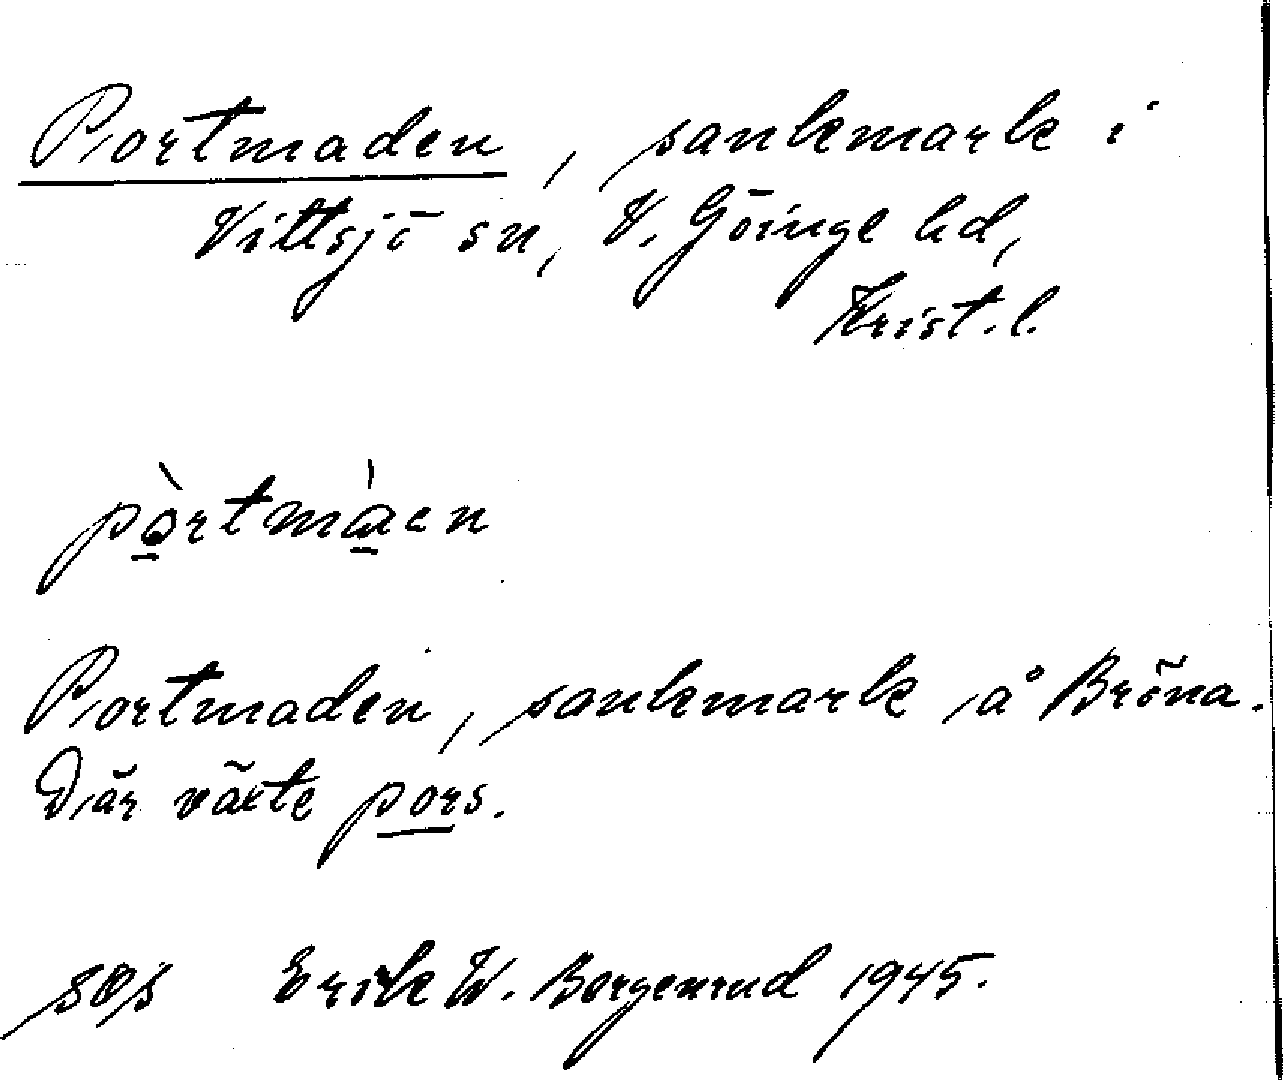 Portmaden, sankmark i
Vittsjö sn, V. Göinge hd,
Krist. l.
pòrtmàen
Portmaden, sankmark å Bröna.
Där växte pors.
Erik W. Bergenrud 1945.